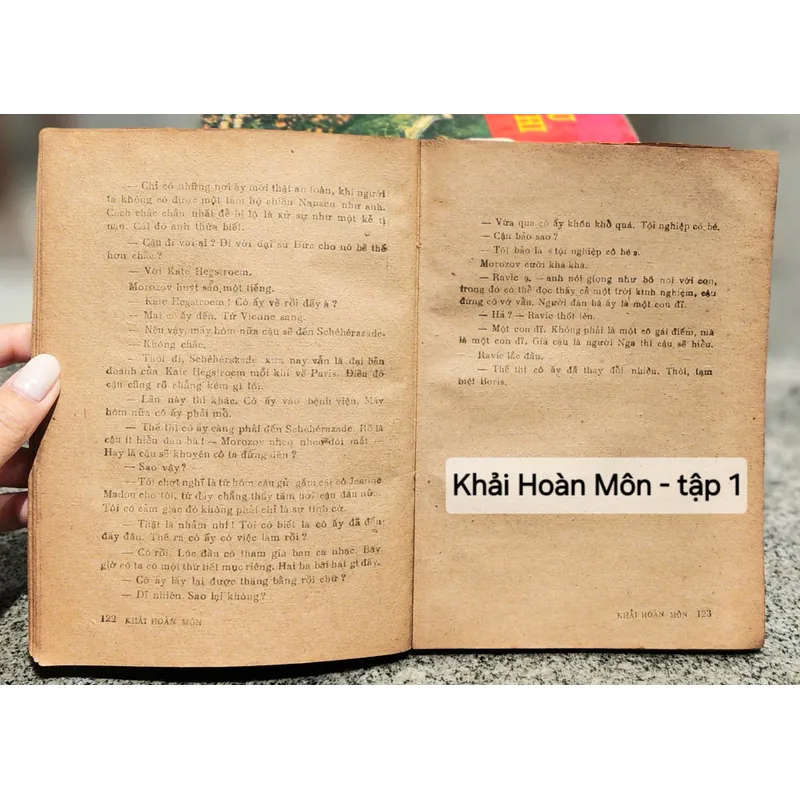 — Chỉ có những nơi ấy mới thật an toàn, khi người
ta không có được một tấm hộ chiếu Nansen như anh.
Cách chắc chắn nhất để bị lộ là xử sự như một kẻ tị
nạn. Cái đó anh thừa biết.
— Cậu đi với ai ? Đi với đại sứ Đức cho nó bề thế
hơn chắc ?
— Với Kate Hegstroem.
Morozov huýt sáo một tiếng.
— Kate Hegstroem ! Cô ấy về rồi đấy à ?
— Mai cô ấy đến. Từ Vienne sang.
— Nếu vậy, mấy hôm nữa cậu sẽ đến Schéhérazade.
— Không chắc.
— Thôi đi, Schéhérazade xưa nay vẫn là đại bản
doanh của Kate Hegstroem mỗi khi về Paris. Điều đó
cậu cũng rõ chẳng kém gì tôi.
— Lần này thì khác. Cô ấy vào bệnh viện. Mấy
hôm nữa cô ấy phải mổ.
— Thế thì cô ấy càng phải đến Schéhérazade. Rõ là
cậu ít hiểu đàn bà ! — Morozov nheo nheo đôi mắt —
Hay là cậu sẽ khuyên cô ta đừng đến ?
— Sao vậy ?
— Tôi chợt nghĩ là từ hôm cậu gửi gắm cái cô Jeanne
Madou cho tôi, từ đấy chẳng thấy tăm hơi cậu đâu nữa.
Tôi có cảm giác đó không phải chỉ là sự tình cờ.
— Thật là nhảm nhí ! Tôi có biết là cô ấy đã đến
đấy đâu. Thế ra cô ấy có việc làm rồi ?
— Có rồi. Lúc đầu cô tham gia ban ca nhạc. Bây
giờ cô ta có một thứ tiết mục riêng. Hai ba bài hát gì đấy.
— Cô ấy lấy lại được thăng bằng rồi chứ ?
— Dĩ nhiên. Sao lại không ?
122 KHẢI HOÀN MÔN
— Vừa qua cô ấy khốn khổ quá. Tội nghiệp cô bé.
— Cậu bảo sao ?
— Tôi bảo là « tội nghiệp cô bé ».
Morozov cười khà khà.
— Ravic ạ, — anh nói giọng như bố nói với con,
trong đó có thể đọc thấy cả một trời kinh nghiệm, cậu
đừng có vớ vẩn. Người đàn bà ấy là một con đĩ.
— Hả ? — Ravic thốt lên.
— Một con đĩ. Không phải là một cô gái điếm, mà
là một con đĩ. Giá cậu là người Nga thì cậu sẽ hiểu.
Ravic lắc đầu.
— Thế thì cô ấy đã thay đổi nhiều. Thôi, tạm
biệt Boris.
Khải Hoàn Môn - tập 1
KHẢI HOÀN MÔN 123